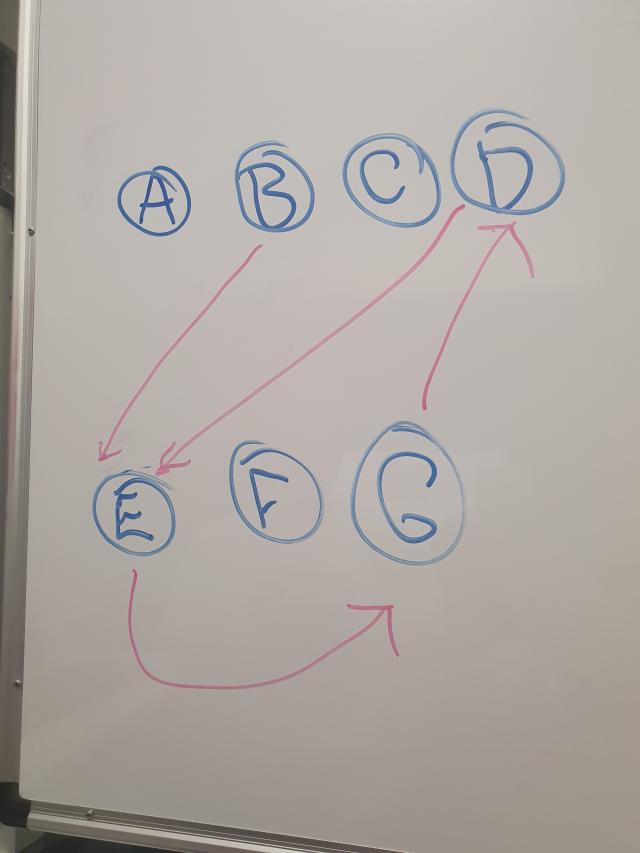 A B C D
E F G